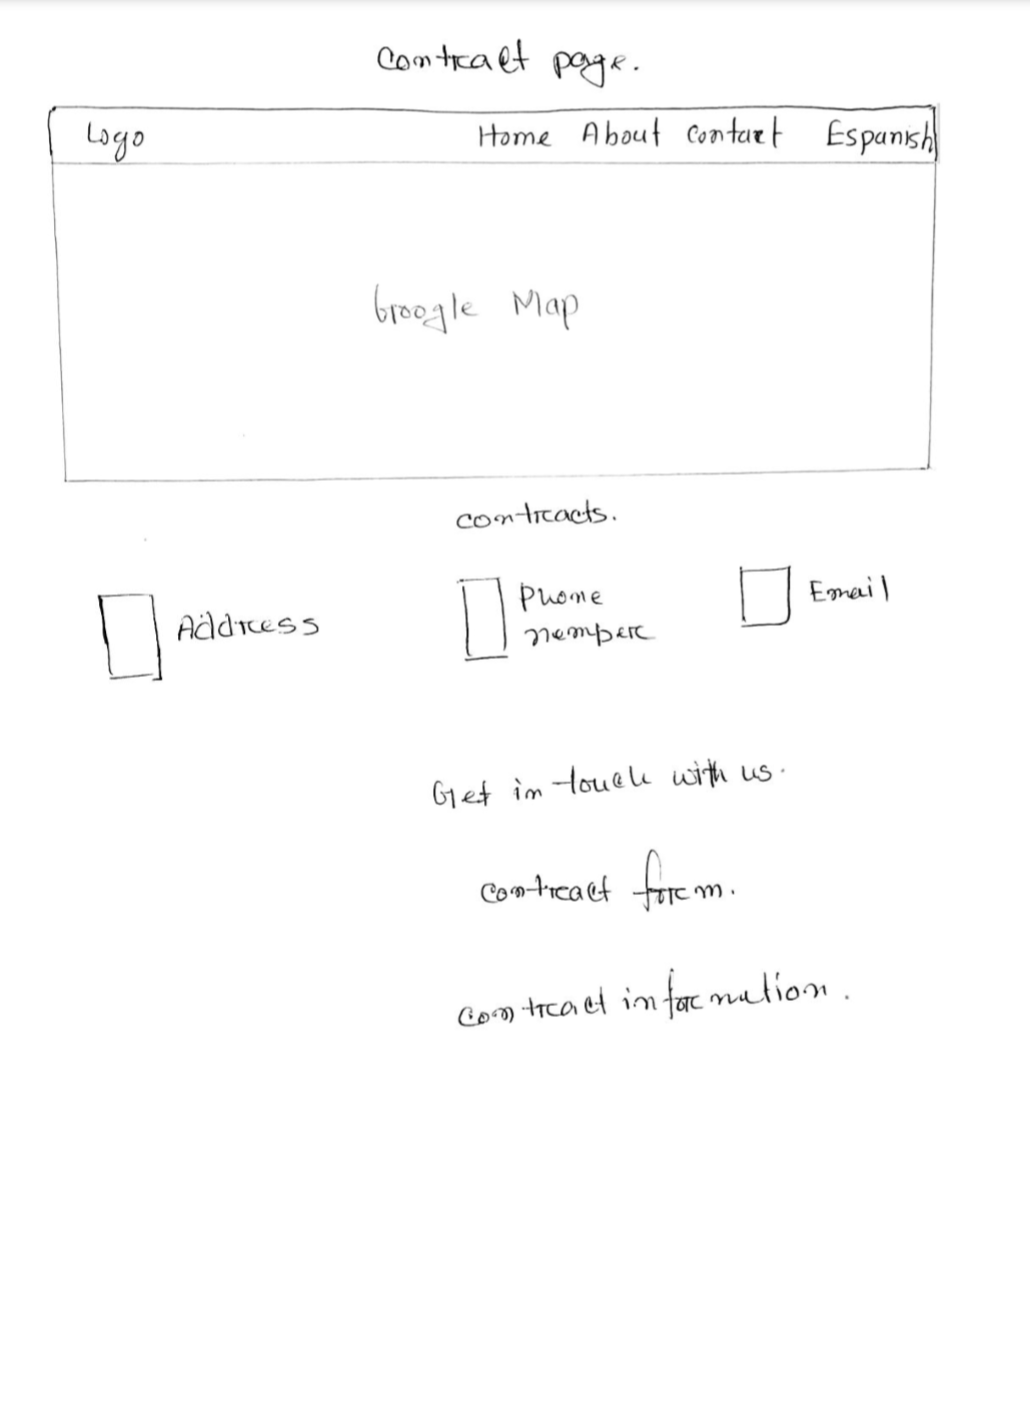 Contract page.
Logo Home About Contact Espanish
Google Map
contracts.
Address
Phone
nemper
Email
Get in touch with us.
Contract form.
Contract information.